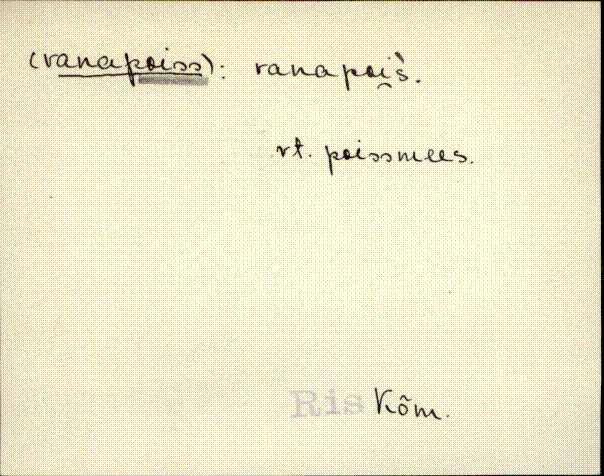 (vanapoiss): vanapoi̮s̀.
vt. poissmees.
Ris Kõm.